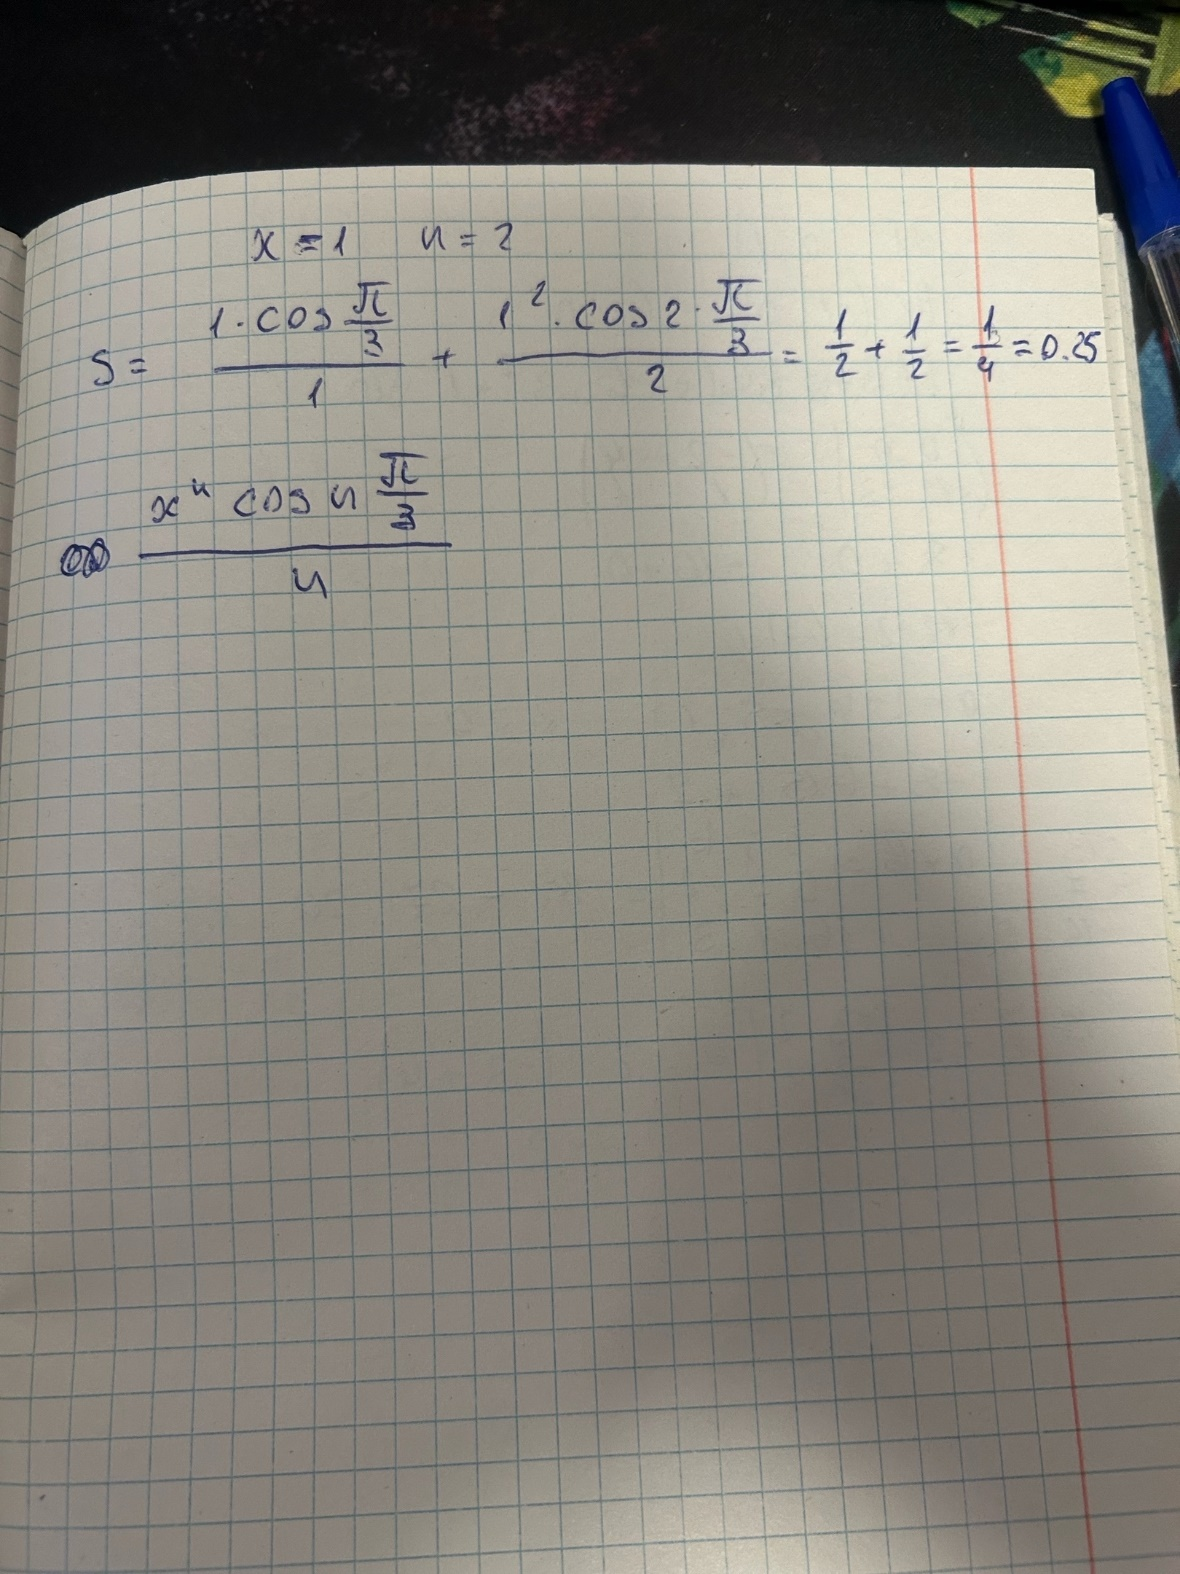 x = 1 n = 2
S = \frac{1 \cdot \cos \frac{\pi}{3}}{1} + \frac{1^2 \cdot \cos 2 \cdot \frac{\pi}{3}}{2} = \frac{1}{2} + \frac{1}{2} = \frac{1}{4} = 0.25
\frac{x^n \cos n \frac{\pi}{3}}{n}